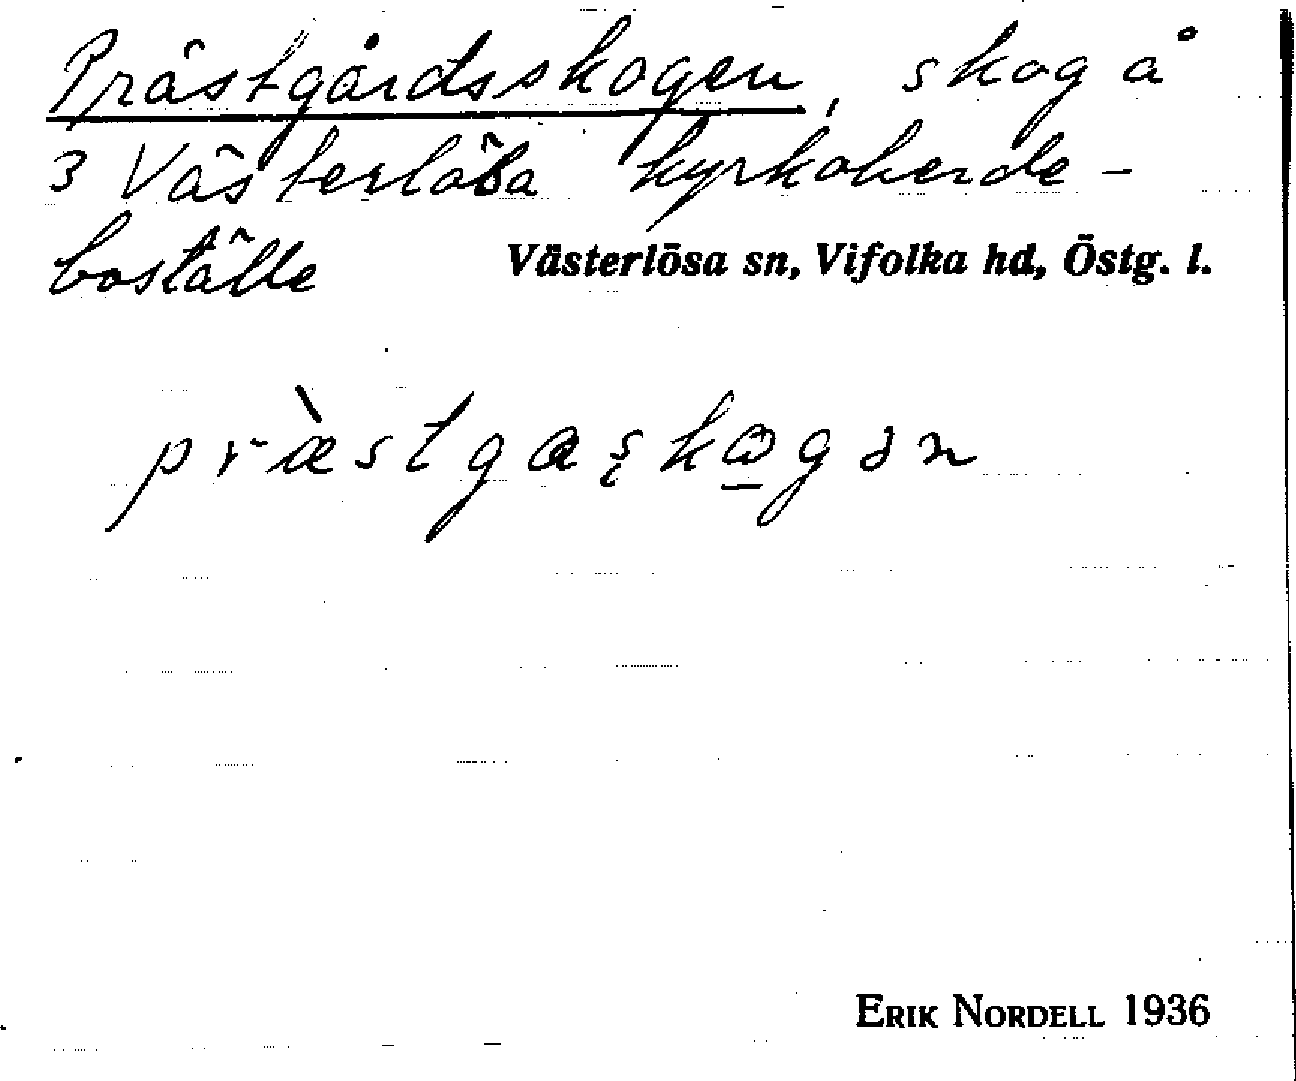 Prästgårdsskogen, skog å
3 Västerlösa kyrkoherde-
boställe
Västerlösa sn, Vifolka hd, Östg. l.
præ̀stgaşkω̲gən
ERIK NORDELL 1936